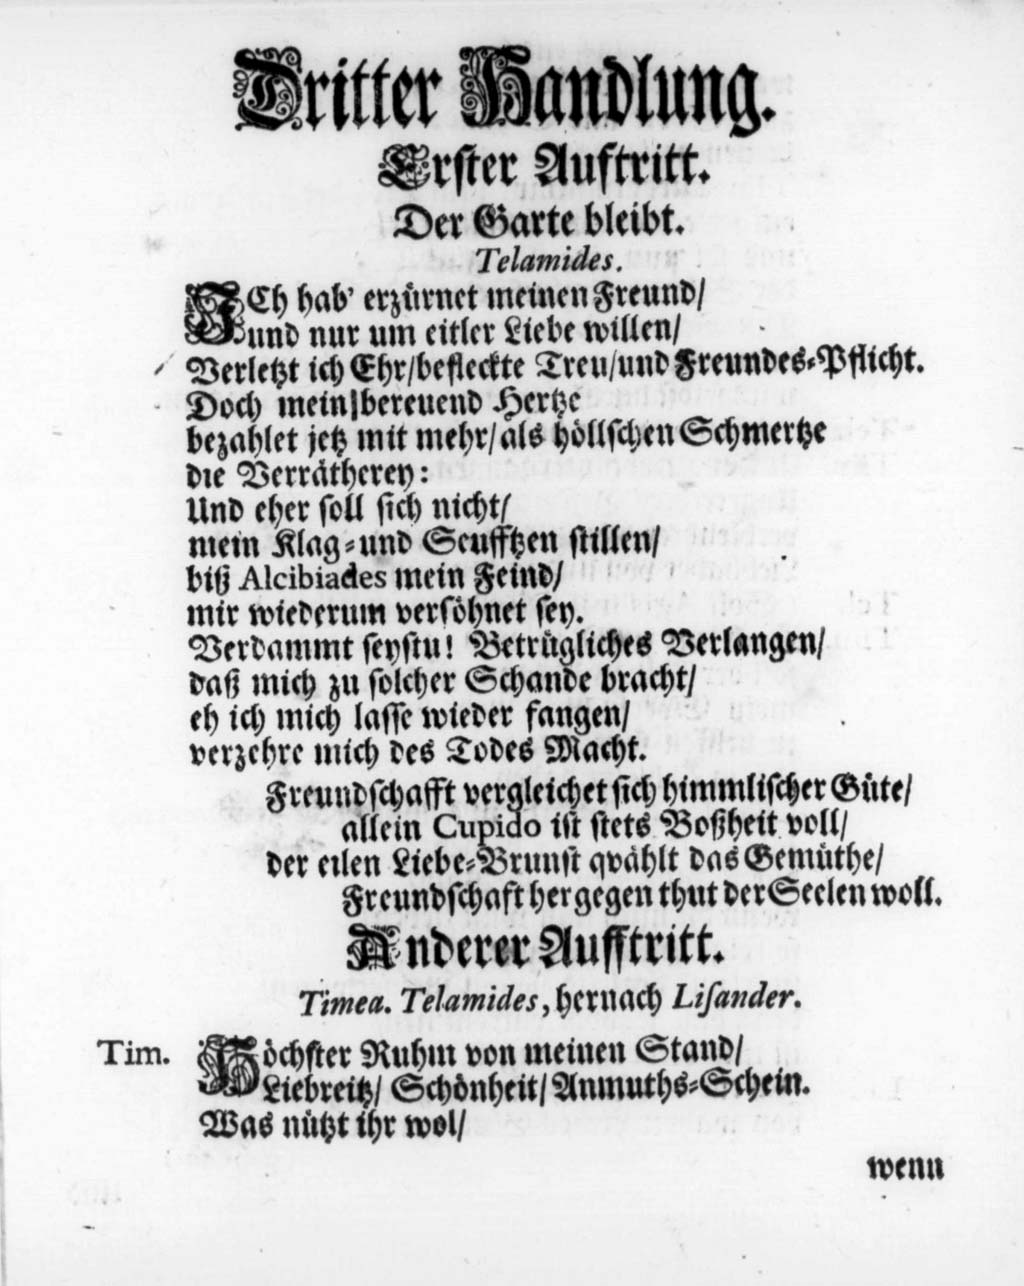 Dritter Handlung.
Erster Auftritt.
Der Garte bleibt.
Telamides.
ICh hab' erzürnet meinen Freund/
und nur um eitler Liebe willen/
Verletzt ich Ehr/befleckte Treu/und Freundes-Pflicht.
Doch mein bereuend Hertze
bezahlet jetz mit mehr/als höllschen Schmertze
die Verrätherey:
Und eher soll sich nicht/
mein Klag-und Seufftzen stillen/
biß Alcibiades mein Feind/
mir wiederum versöhnet sey.
Verdammt seystu! Betrügliches Verlangen/
daß mich zu solcher Schande bracht/
eh ich mich lasse wieder fangen/
verzehre mich des Todes Macht.
Freundschafft vergleichet sich himmlischer Güte/
allein Cupido ist stets Boßheit voll/
der eilen Liebe-Brunst qvählt das Gemüthe/
Freundschaft hergegen thut der Seelen woll.
Anderer Aufftritt.
Timea. Telamides, hernach Lisander.
Tim. Höchster Ruhm von meinen Stand/
Liebreitz/ Schönheit/ Anmuths-Schein.
Was nützt ihr wol/
wenn